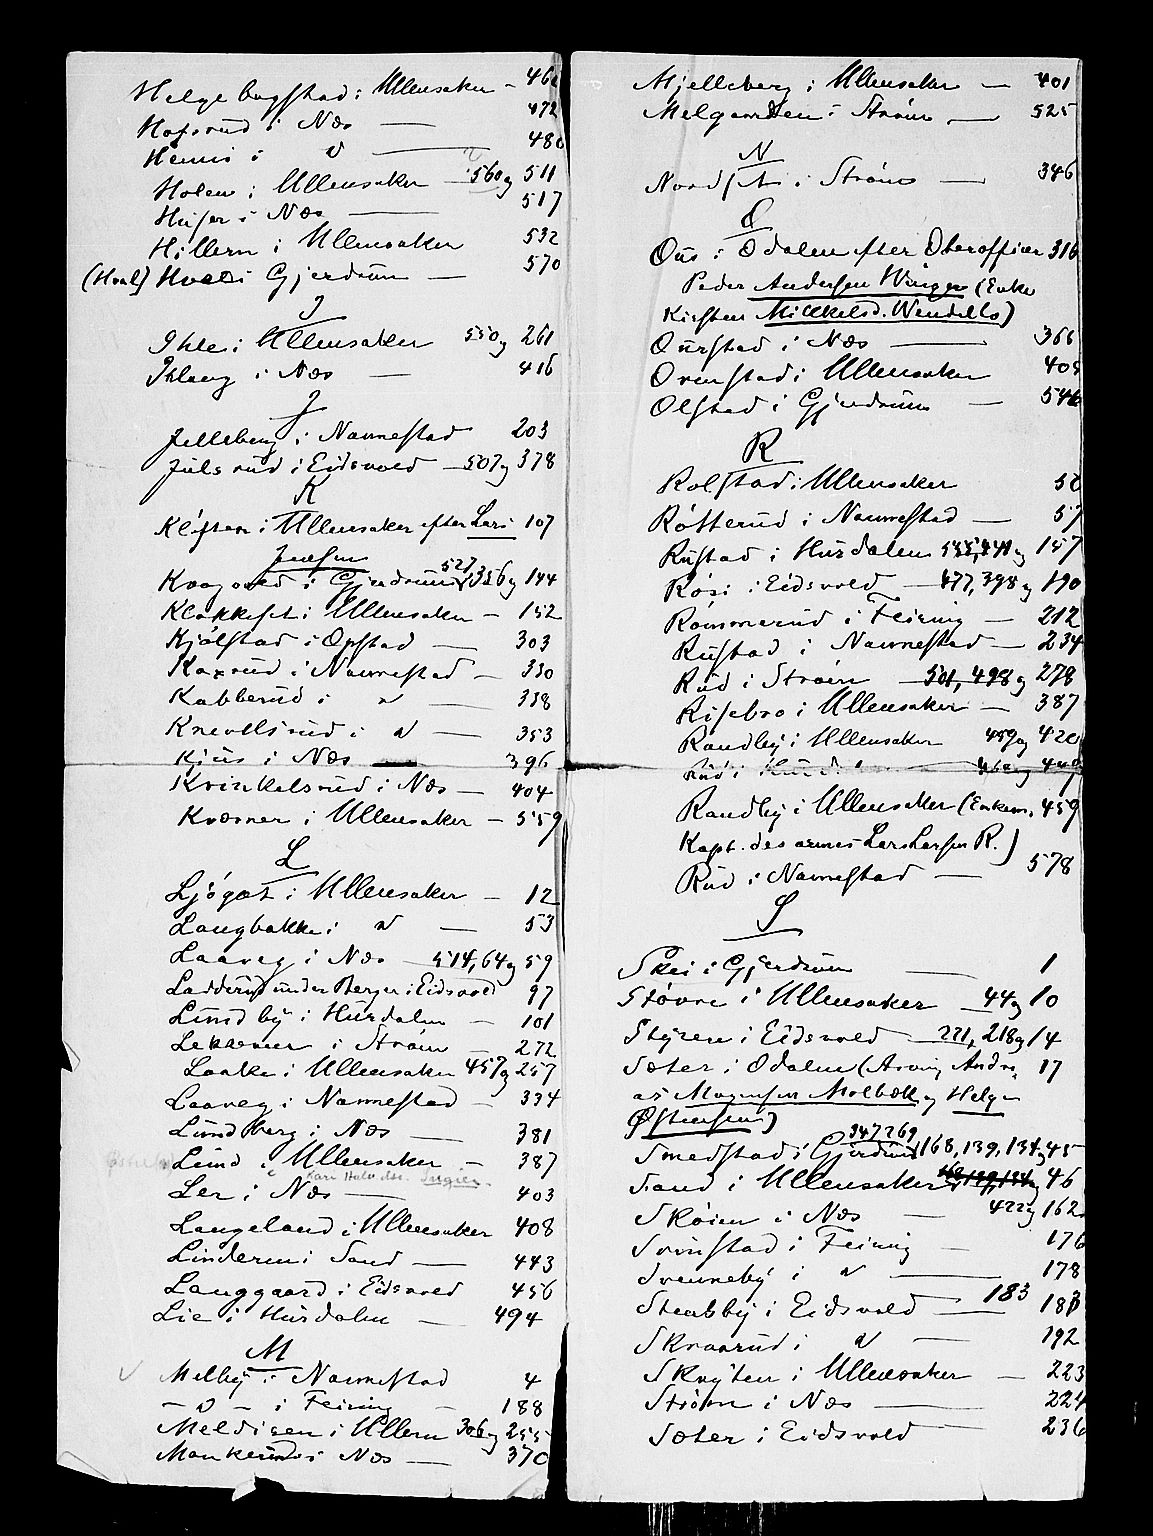 Helgebogstad i Ullensaker - 46
Hofsrud i Næs — 472
Hennis i " — 480
Holen i Ullensaker — 560 og 511
Huser i Næs — 517
Hillern i Ullensaker 532
(Hval) Hvals i Gjerdrum — 570
I
Ihle i Ullensaker 550 og 261
Ihlang i Næs — 416
J
Jelleberg i Nannestad 203
Julsrud i Eidsvold — 507 og 378
K
Kløften i Ullensaker efter Lars 107
Jensen
Kragvold i Gjerdrum 527, 356 og 144
Klokkeset i Ullensaker - 152
Kjølstad i Opstad — 303
Kaxrud i Nannestad — 330
Kabberud i " — 338
Knevelsrud i " — 353
Kjus i Næs — 396
Kvinkelsrud i Næs — 404
Kværner i Ullensaker — 559
L
Ljøgot i Ullensaker — 12
Langbakke i " — 53
Laaveg i Næs — 514, 64 og 59
Ladderud under Berger i Eidsvold 97
Lundby i Hurdalen — 101
Lekkemer i Strøm — 272
Laake i Ullensaker 457 og 257
Laaveg i Nannestad — 334
Lundberg i Næs — 381
Lund i Ullensaker — 387
Kari Halvdsr.
Ler i Næs — 403
Langeland i Ullensaker 408
Linderen i Sand — 443
Langgaard i Eidsvold 456
Lie i Hurdalen — 494
M
Melby i Nannestad 4
— " — i Feiring — 188
Meldigen i Ullern 306 og 255
Mankerud i Næs — 370
Mjelleberg i Ullensaker — 401
Melgarden i Strøm — 525
N
Nordset i Strøm — 346
O
Ous i Odalen efter Oberofficer 316
Peder Andersen Winger (Enke
Kirsten Mikkelsd. Wendelbo)
Ourstad i Næs — 366
Ovenstad i Ullensaker 405
Olstad i Gjerdrum — 546
R
Rolstad i Ullensaker 50
Røtterud i Nannestad — 57
Rustad i Hurdalen 555, 441 og 157
Røsi i Eidsvold — 477, 398 og 190
Rømmerud i Feiring — 212
Rustad i Nannestad — 234
Rud i Strøm — 501, 498 og 278
Risebro i Ullensaker — 387
Randby i Ullensaker 459 og 420
Rud i
Randby i Ullensaker (Enkem. 459
Kapt. des armes Lars Larsen R.)
Rud i Nannestad — 578
S
Skei i Gjerdrum — 1
Støvre i Ullensaker — 44 og 10
Styren i Eidsvold — 221, 218 og 14
Sæter i Odalen (Arving Andre- 17
as Mogensen Molbækk og Helge
Østensen)
Smedstad i Gjerdrum 347 269 168, 139, 134 og 45
Sand i Ullensaker 168, 139, 134 og 46
Skøien i Næs — 422 og 162
Svinstad i Feiring — 176
Svenneby i " — 178
Stenbby i Eidsvold — 183 183
Skraarud i " — 192
Skryten i Ullensaker — 223
Strøm i Næs — 224
Sæter i Eidsvold 236